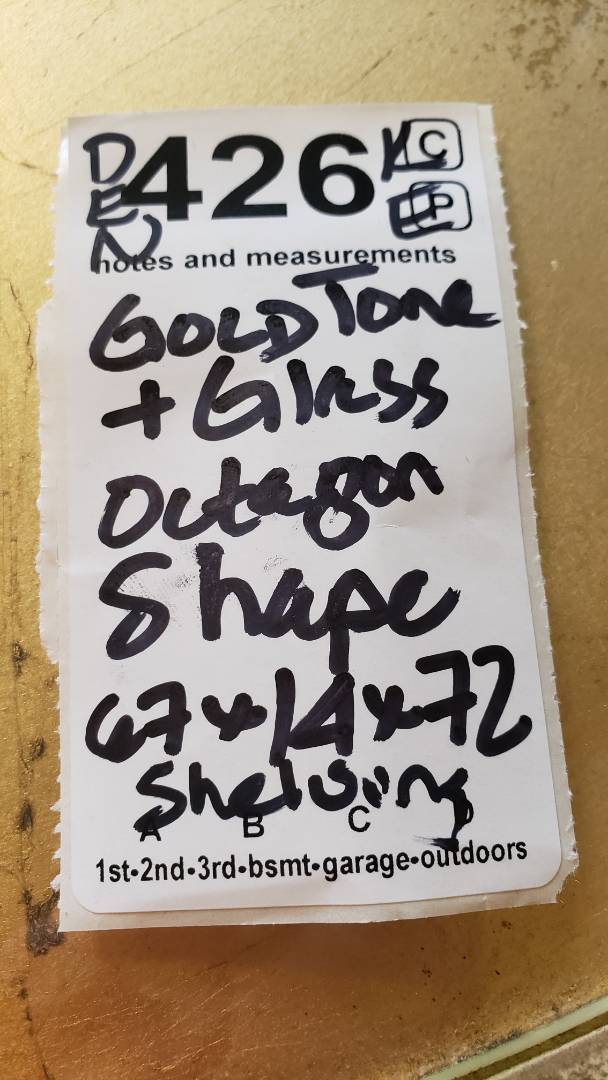 DEN 426 KE C P
notes and measurements
GOLD Tone
+ Glass
Octagon
Shape
67x14x72
Shelving
A B C D
1st•2nd•3rd•bsmt•garage•outdoors